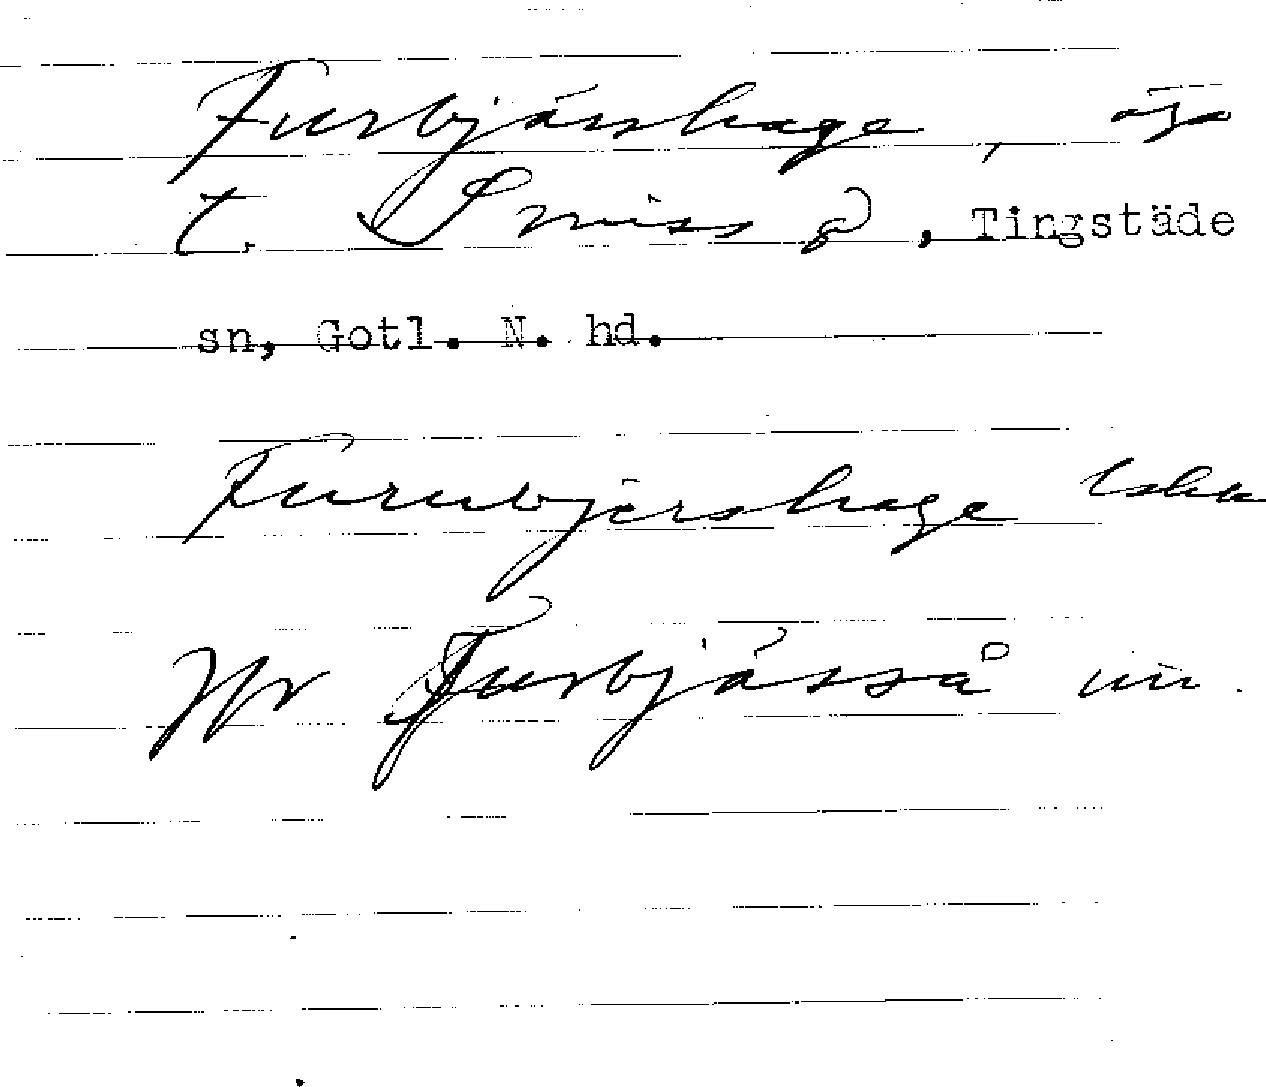 Furbjärshage,
t. Smiss g, Tingstäde
sn, Gotl. N. hd.
Furubjershage
Jfr Furbjässå